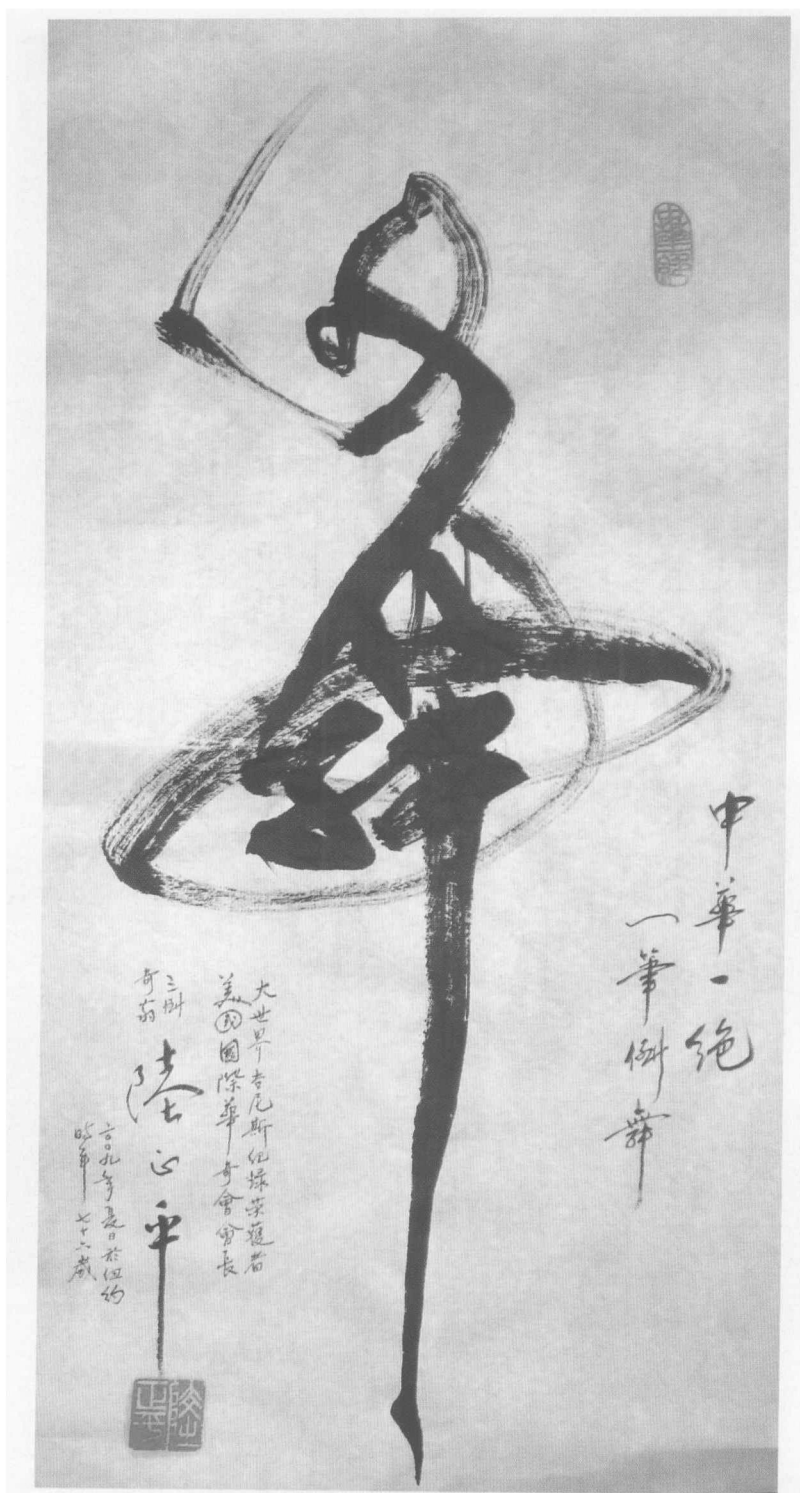 舞
中華一絕
一筆倒舞
大世界吉尼斯紀錄榮獲者
美國國際華人奇會會長
三倒
奇翁
陸正平
二00九年夏日於紐約
時年七十六歲
陸正平